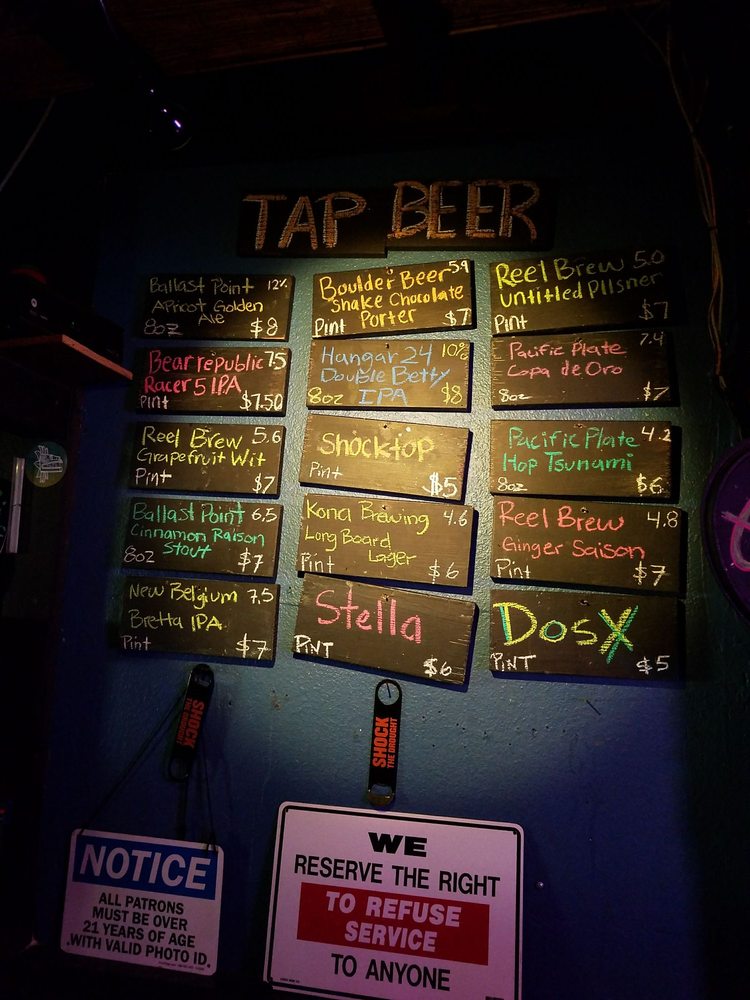 TAP BEER
Ballast Point 12%
Apricot Golden
Ale
8oz $8
Boulder Beer 5.9
Shake Chocolate
Porter
Pint $7
Reel Brew 5.0
Untitled Pilsner
Pint $7
Bear republic 7.5
Racer 5 IPA
Pint $7.50
Hangar 24 10%
Double Betty
8oz IPA $8
Pacific Plate 7.4
Copa de Oro
8oz $7
Reel Brew 5.6
Grapefruit Wit
Pint $7
Shocktop
Pint $5
Pacific Plate 4.2
Hop Tsunami
8oz $6
Ballast Point 6.5
Cinnamon Raison
Stout
8oz $7
Kona Brewing 4.6
Long Board
Lager
Pint $6
Reel Brew 4.8
Ginger Saison
Pint $7
New Belgium 7.5
Bretta IPA
Pint $7
Stella
PINT $6
Dos X
PINT $5
SHOCK
THE DROUGHT
SHOCK
THE DROUGHT
NOTICE
ALL PATRONS
MUST BE OVER
21 YEARS OF AGE
WITH VALID PHOTO ID.
WE
RESERVE THE RIGHT
TO REFUSE
SERVICE
TO ANYONE